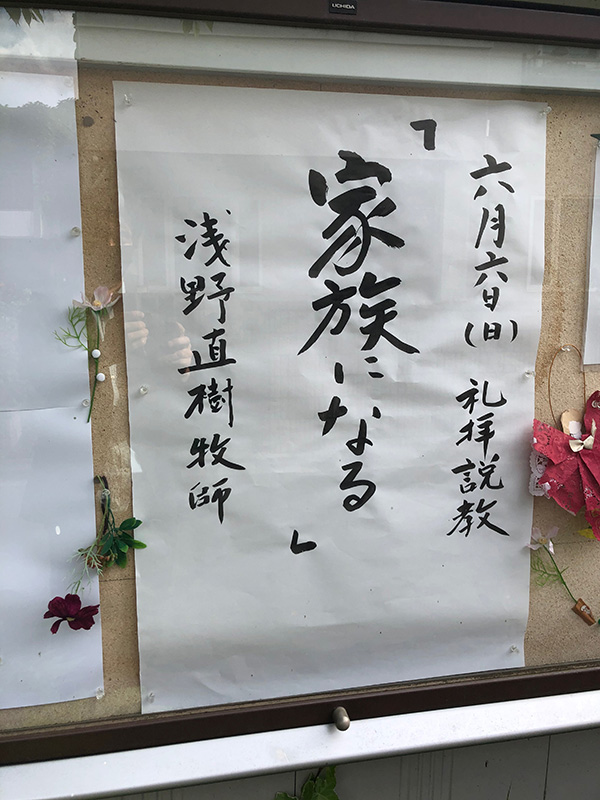 UCHIDA
六月六日(日) 礼拝説教
「家族になる」
浅野直樹牧師